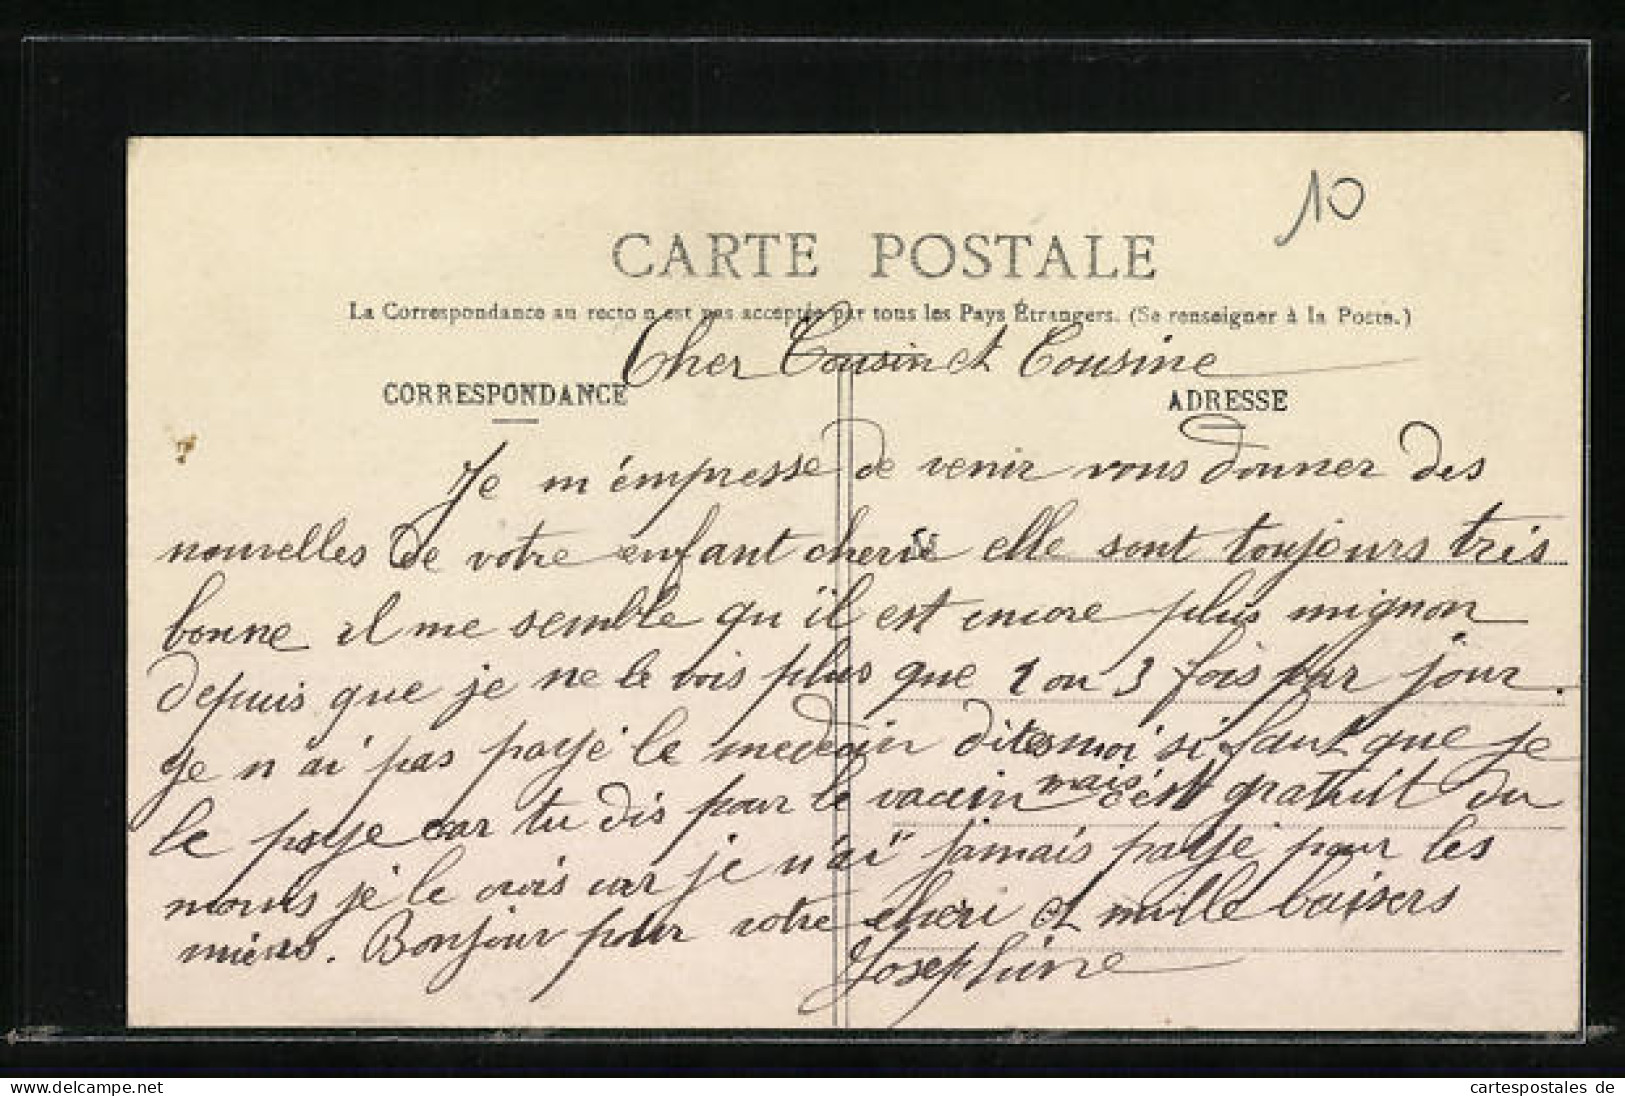 10
CARTE POSTALE
La Correspondance au recto n'est pas acceptée par tous les Pays Étrangers. (Se renseigner à la Poste.)
Cher Cousin et Cousine
CORRESPONDANCE
ADRESSE
Je m'émpresse de venir vous donner des
nouvelles de votre enfant cherie elle sont toujours tres
bonne il me semble qu'il est encore plus mignon
depuis que je ne le vois plus que 2 ou 3 fois par jour.
Je n'ai pas payé le medecin dites moi si faut que je
le paye car tu dis pour le vacin mais c'est gratuit du
moins je le crois car je n'ai jamais payé pour les
miens. Bonjour pour votre cheri et mille baisers
Josephine
delcampe.net
cartespostales de